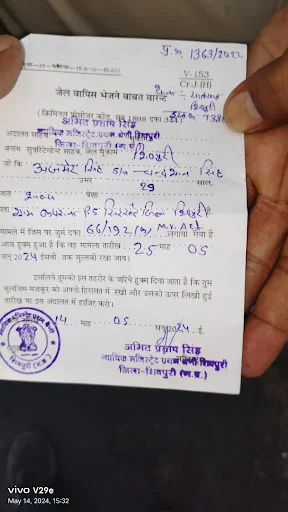 प्र.क्र 1363/2022
V-153
Cr-J (H)
जेल वापिस भेजने बाबत वारन्ट
(क्रिमिनल प्रोसीजर कोड, सन्
अमित प्रताप सिंह
अदालत साहब न्यायिक मजिस्ट्रेट प्रथम श्रेणी शिवपुरी
जिला-शिवपुरी (म.प्र.)
बनाम सुपरिन्टेन्डेन्ट साहब, जेल मुकाम शिवपुरी
जो कि सिंह S/o सिंह
उमर 29 साल,
जात पेशा
ग्राम जिला शिवपुरी
मामले में जिस पर जुर्म दफा 66/192 (1) M.V. Act लगाया गया है
आज हुक्म हुआ है कि यह मामला तारीख 25 माह 05
सन् 2024 ईसवी तक मुल्तवी रखा जाय।
इसलिए तुमको इस तहरीर के जरिये हुक्म दिया जाता है कि तुम
मुलजिम मजकूर को अपनी हिरासत में रखो और उसको ऊपर लिखी हुई
तारीख पर इस अदालत में हाजिर करो।
14 माह 05 सन् 2024 ई.
अमित प्रताप सिंह
न्यायिक मजिस्ट्रेट प्रथम श्रेणी शिवपुरी
जिला-शिवपुरी (म.प्र.)
vivo V29e
May 14, 2024, 15:32